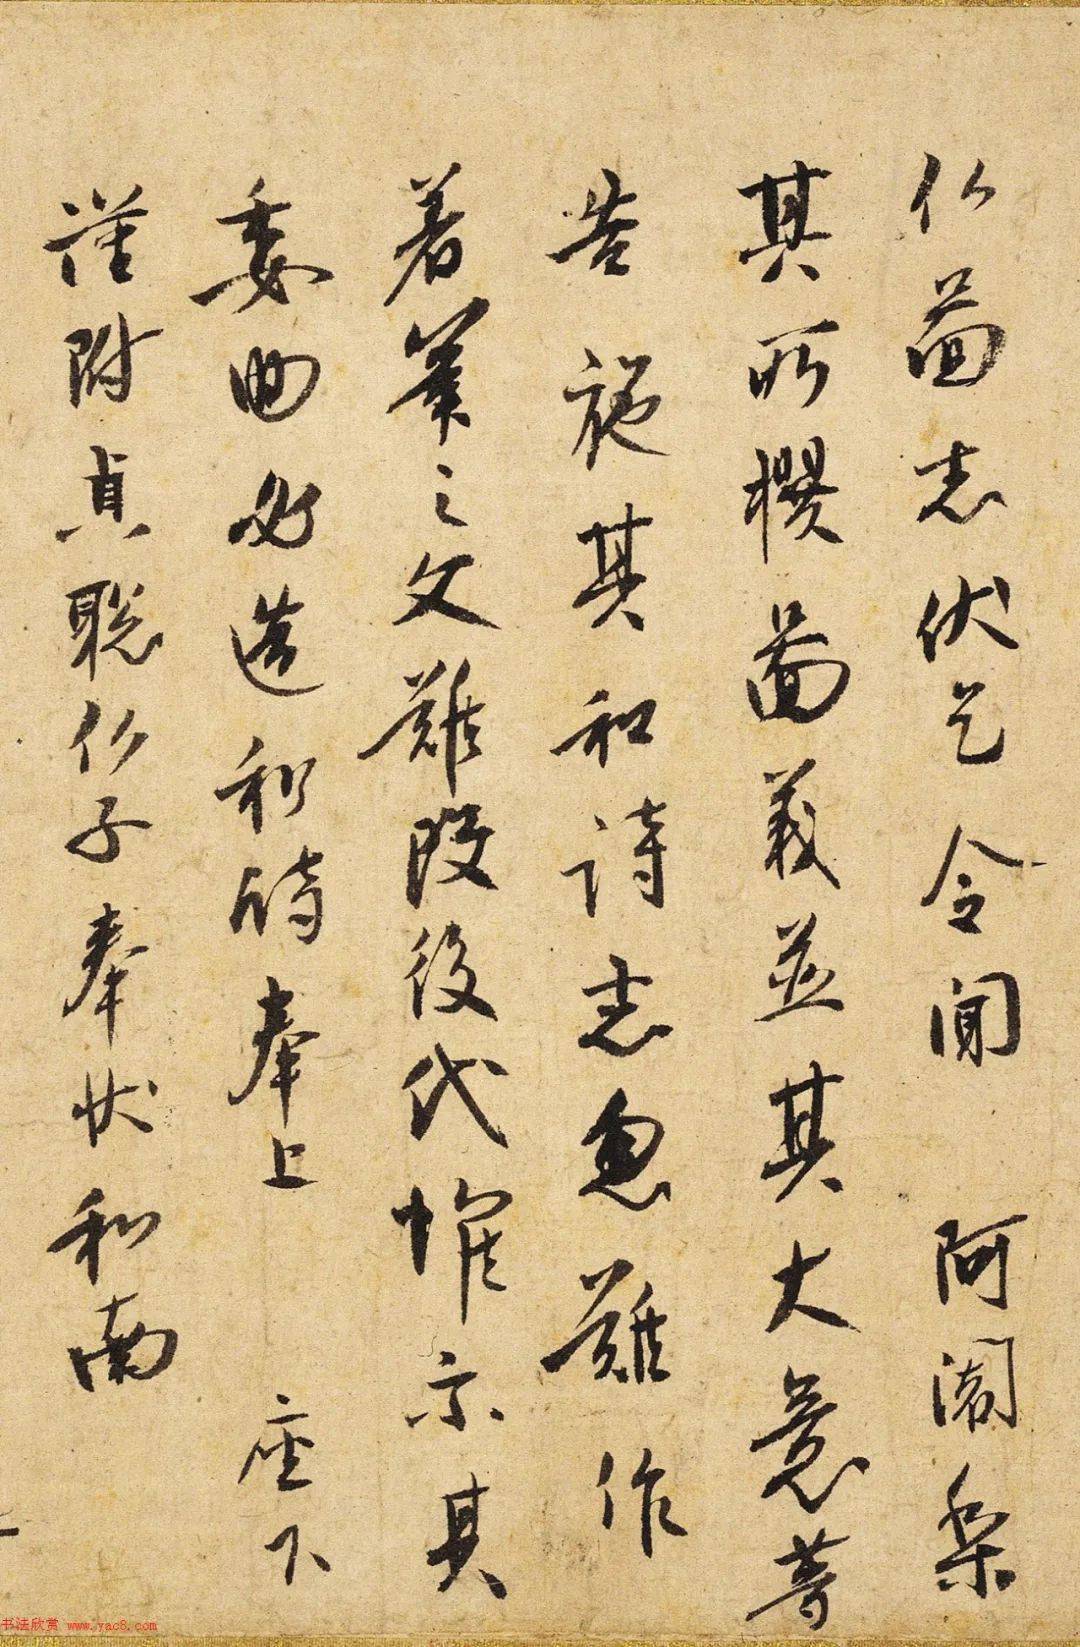 仏啚者伏乞令聞 阿闍梨
其所撰啚義並其大意等
告施其和詩者忽難作
著筆之文難改後代惟示其
委曲必造和詩奉上 座下
謹附貞聡仏子奉状和南
书法欣赏 www.yac8.com